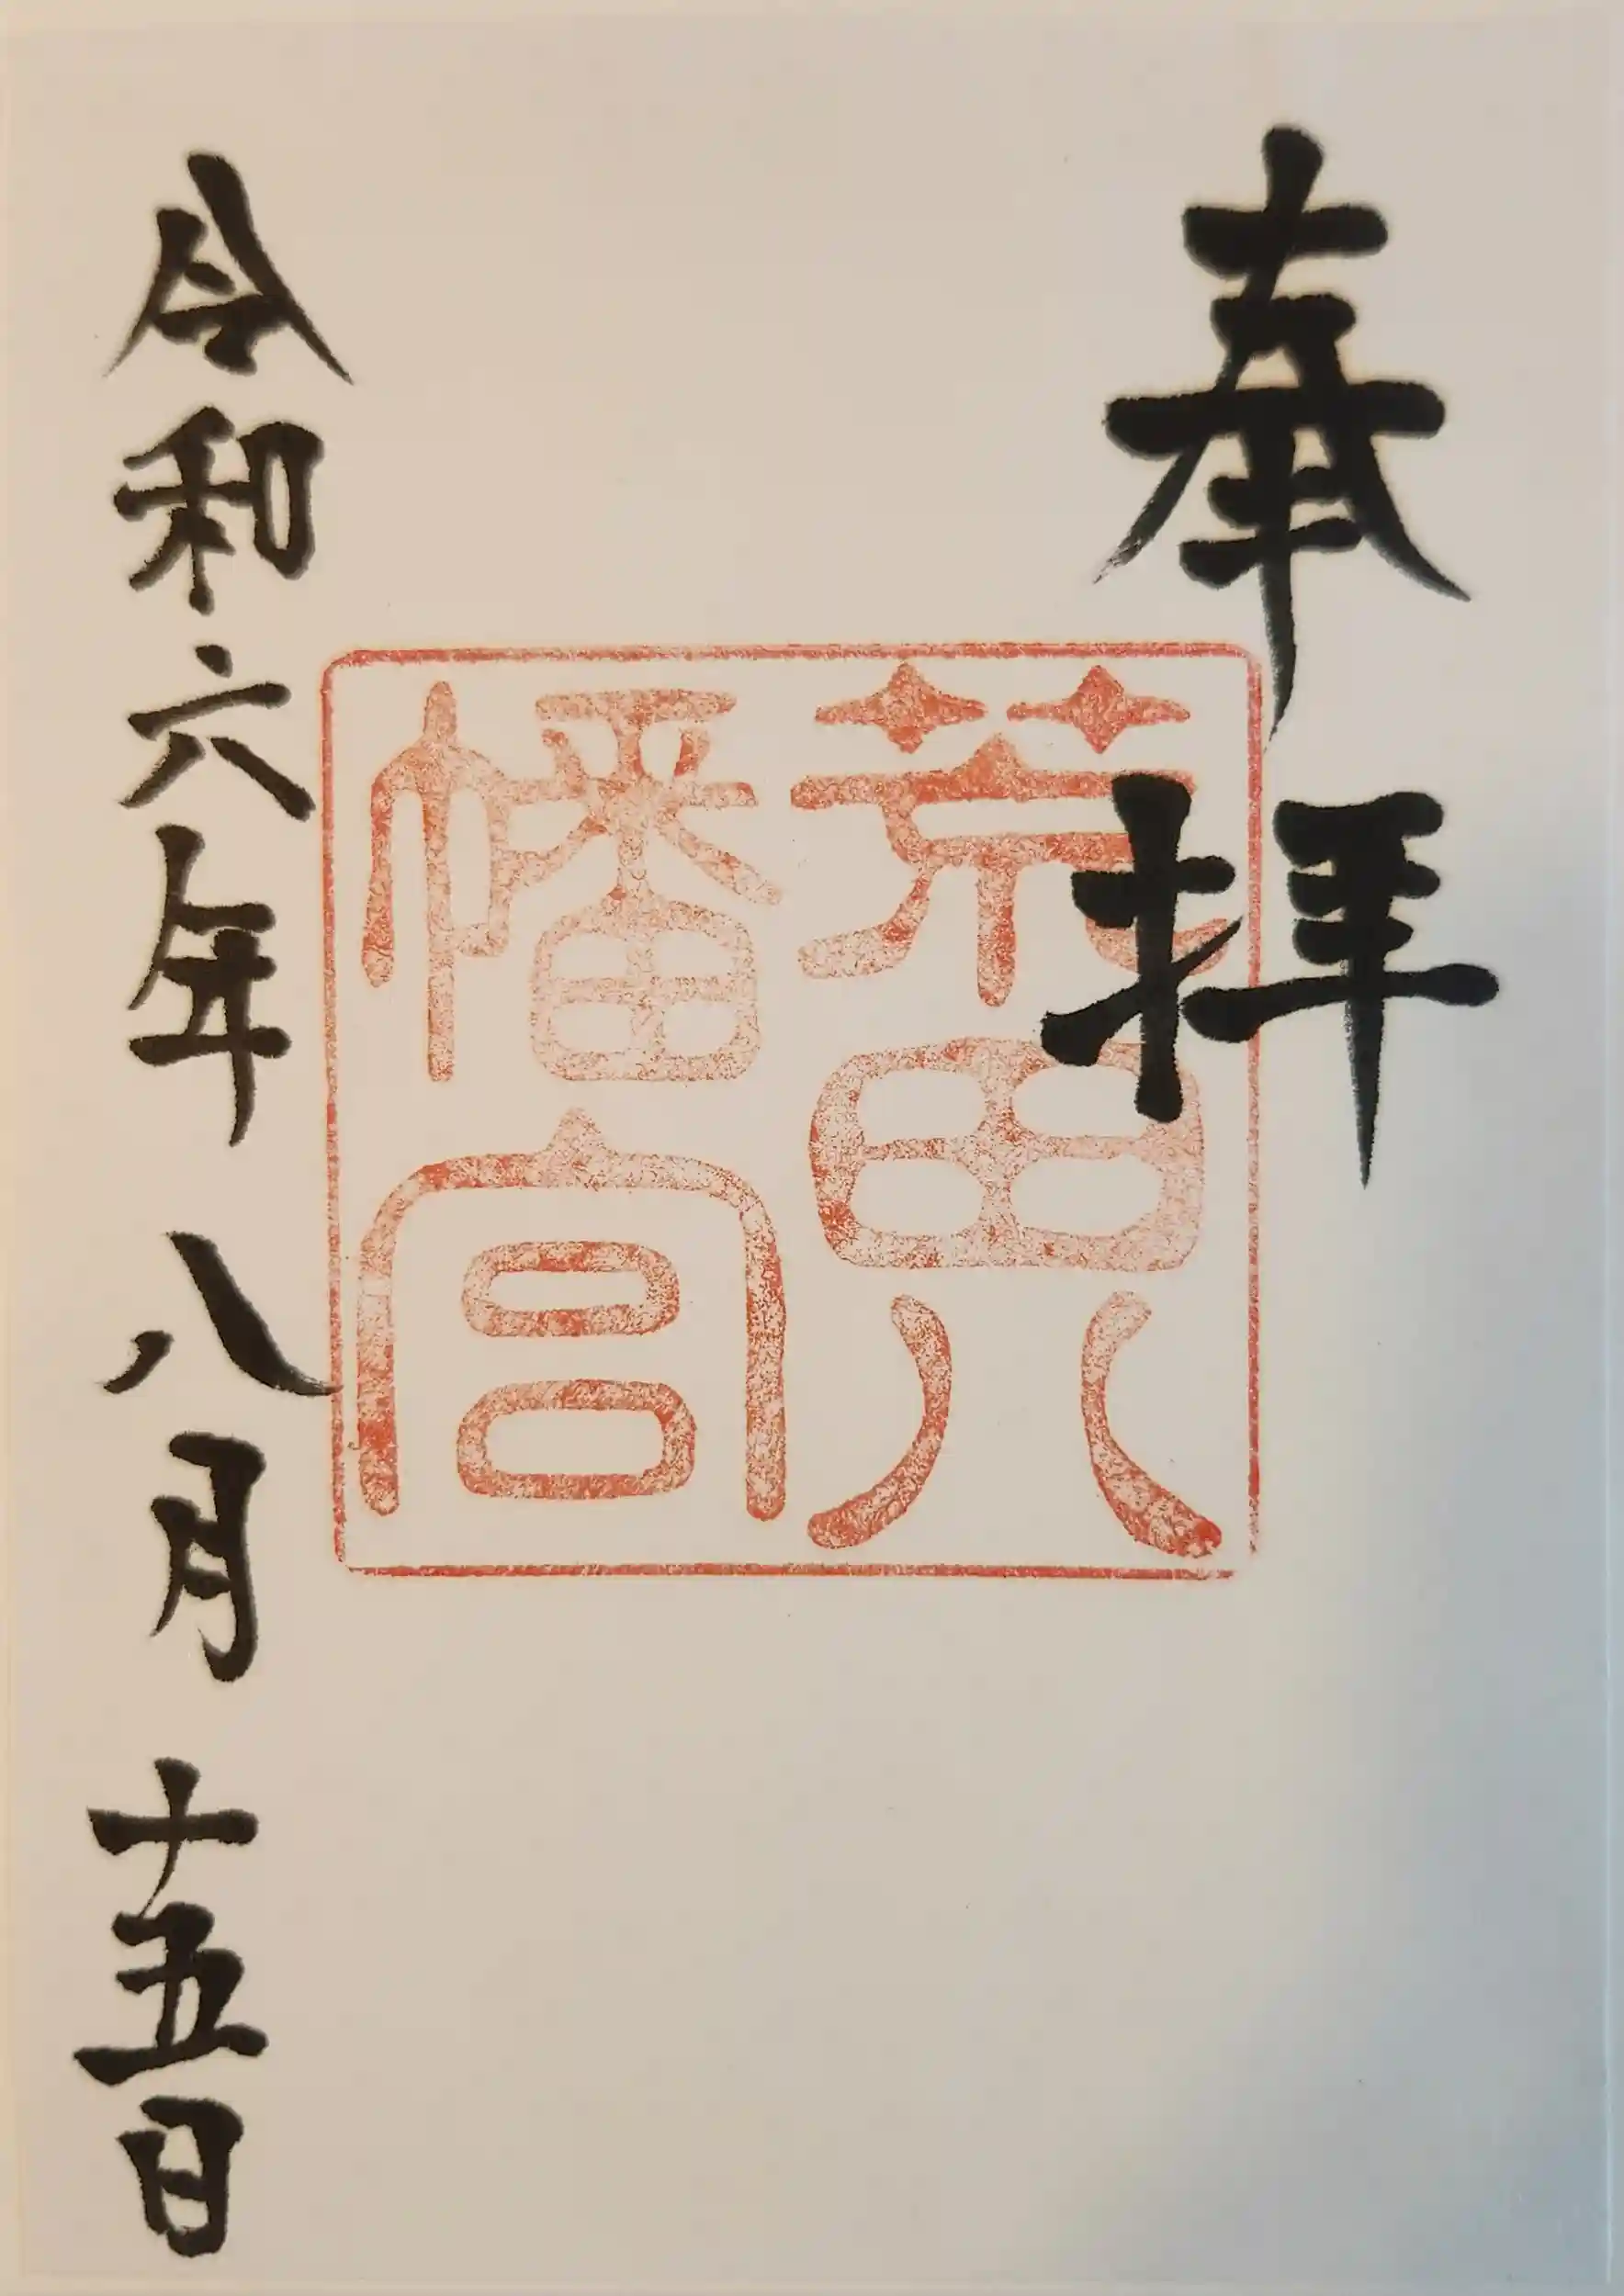 奉拝
荒田八
幡宮
令和六年八月十五日